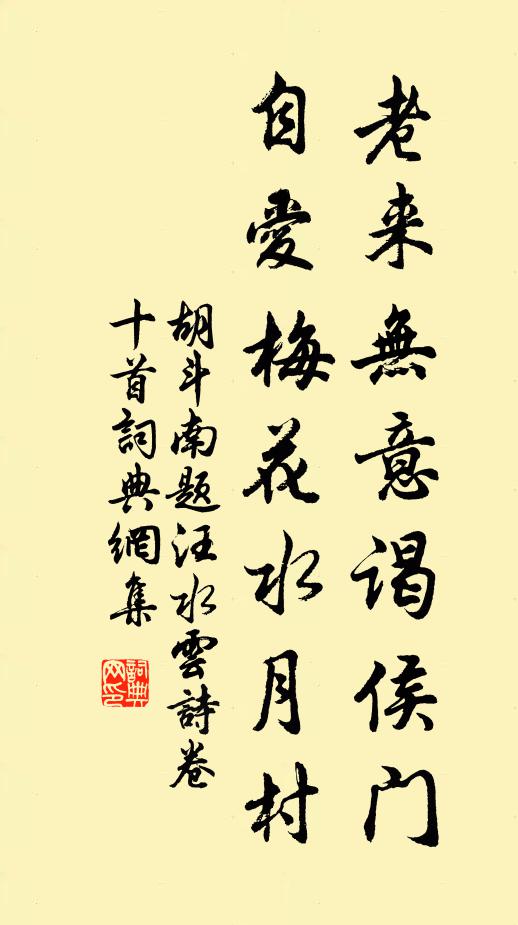 老来無意谒侯门
自愛梅花水月村
胡斗南题汪水雲詩卷
十首詞典網集
詞典网印